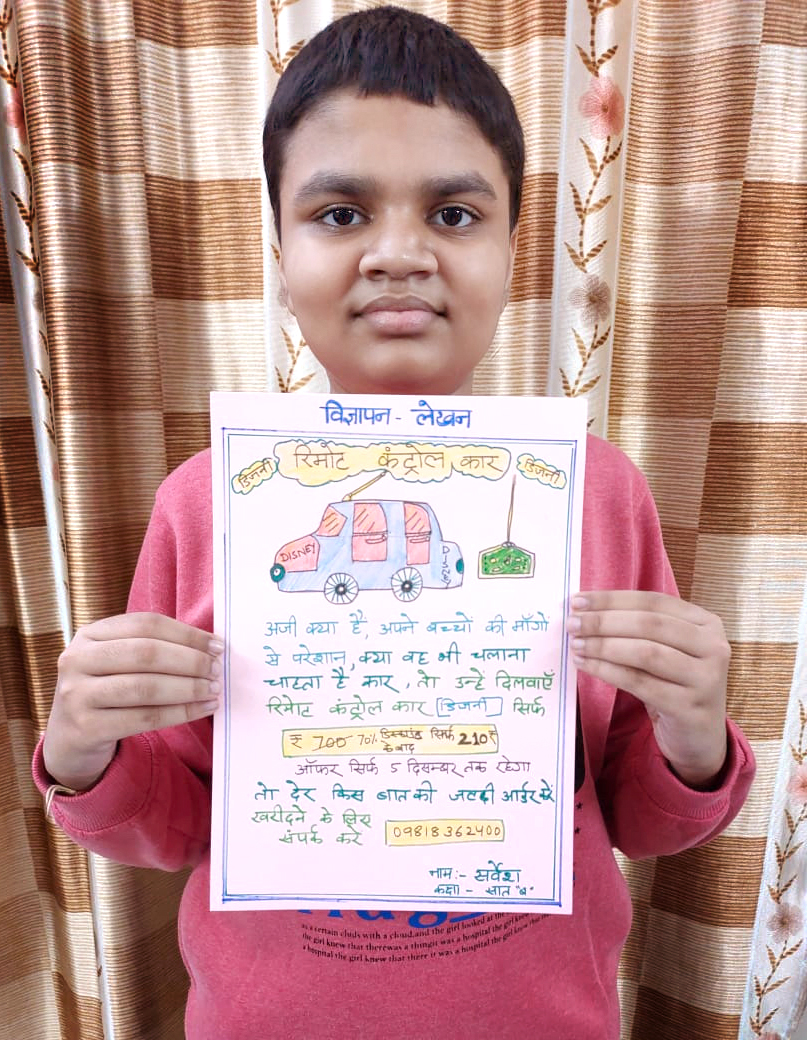 विज्ञापन - लेखन
डिजनी रिमोट कंट्रोल कार डिजनी
DISNEY
DISNEY
अजी क्या है, अपने बच्चों की माँगों
से परेशान, क्या वह भी चलाना
चाहता है कार, तो उन्हे दिलवाएँ
रिमोट कंट्रोल कार डिजनी सिर्फ
₹ 700 70% डिस्काउंट सिर्फ 210₹
के बाद
ऑफर सिर्फ 5 दिसम्बर तक रहेगा
तो देर किस बात की जल्दी आर्डर करे
खरीदने के लिए
संपर्क करे 09818362400
नाम:- सर्वेश
कक्षा - सात "ब"
as a certain cluds with a cloud.and the girl looked at the
the girl knew that therewas a thingit was a hospital the girl knew
a hospital the girl knew that there it was a hospital the girl knew